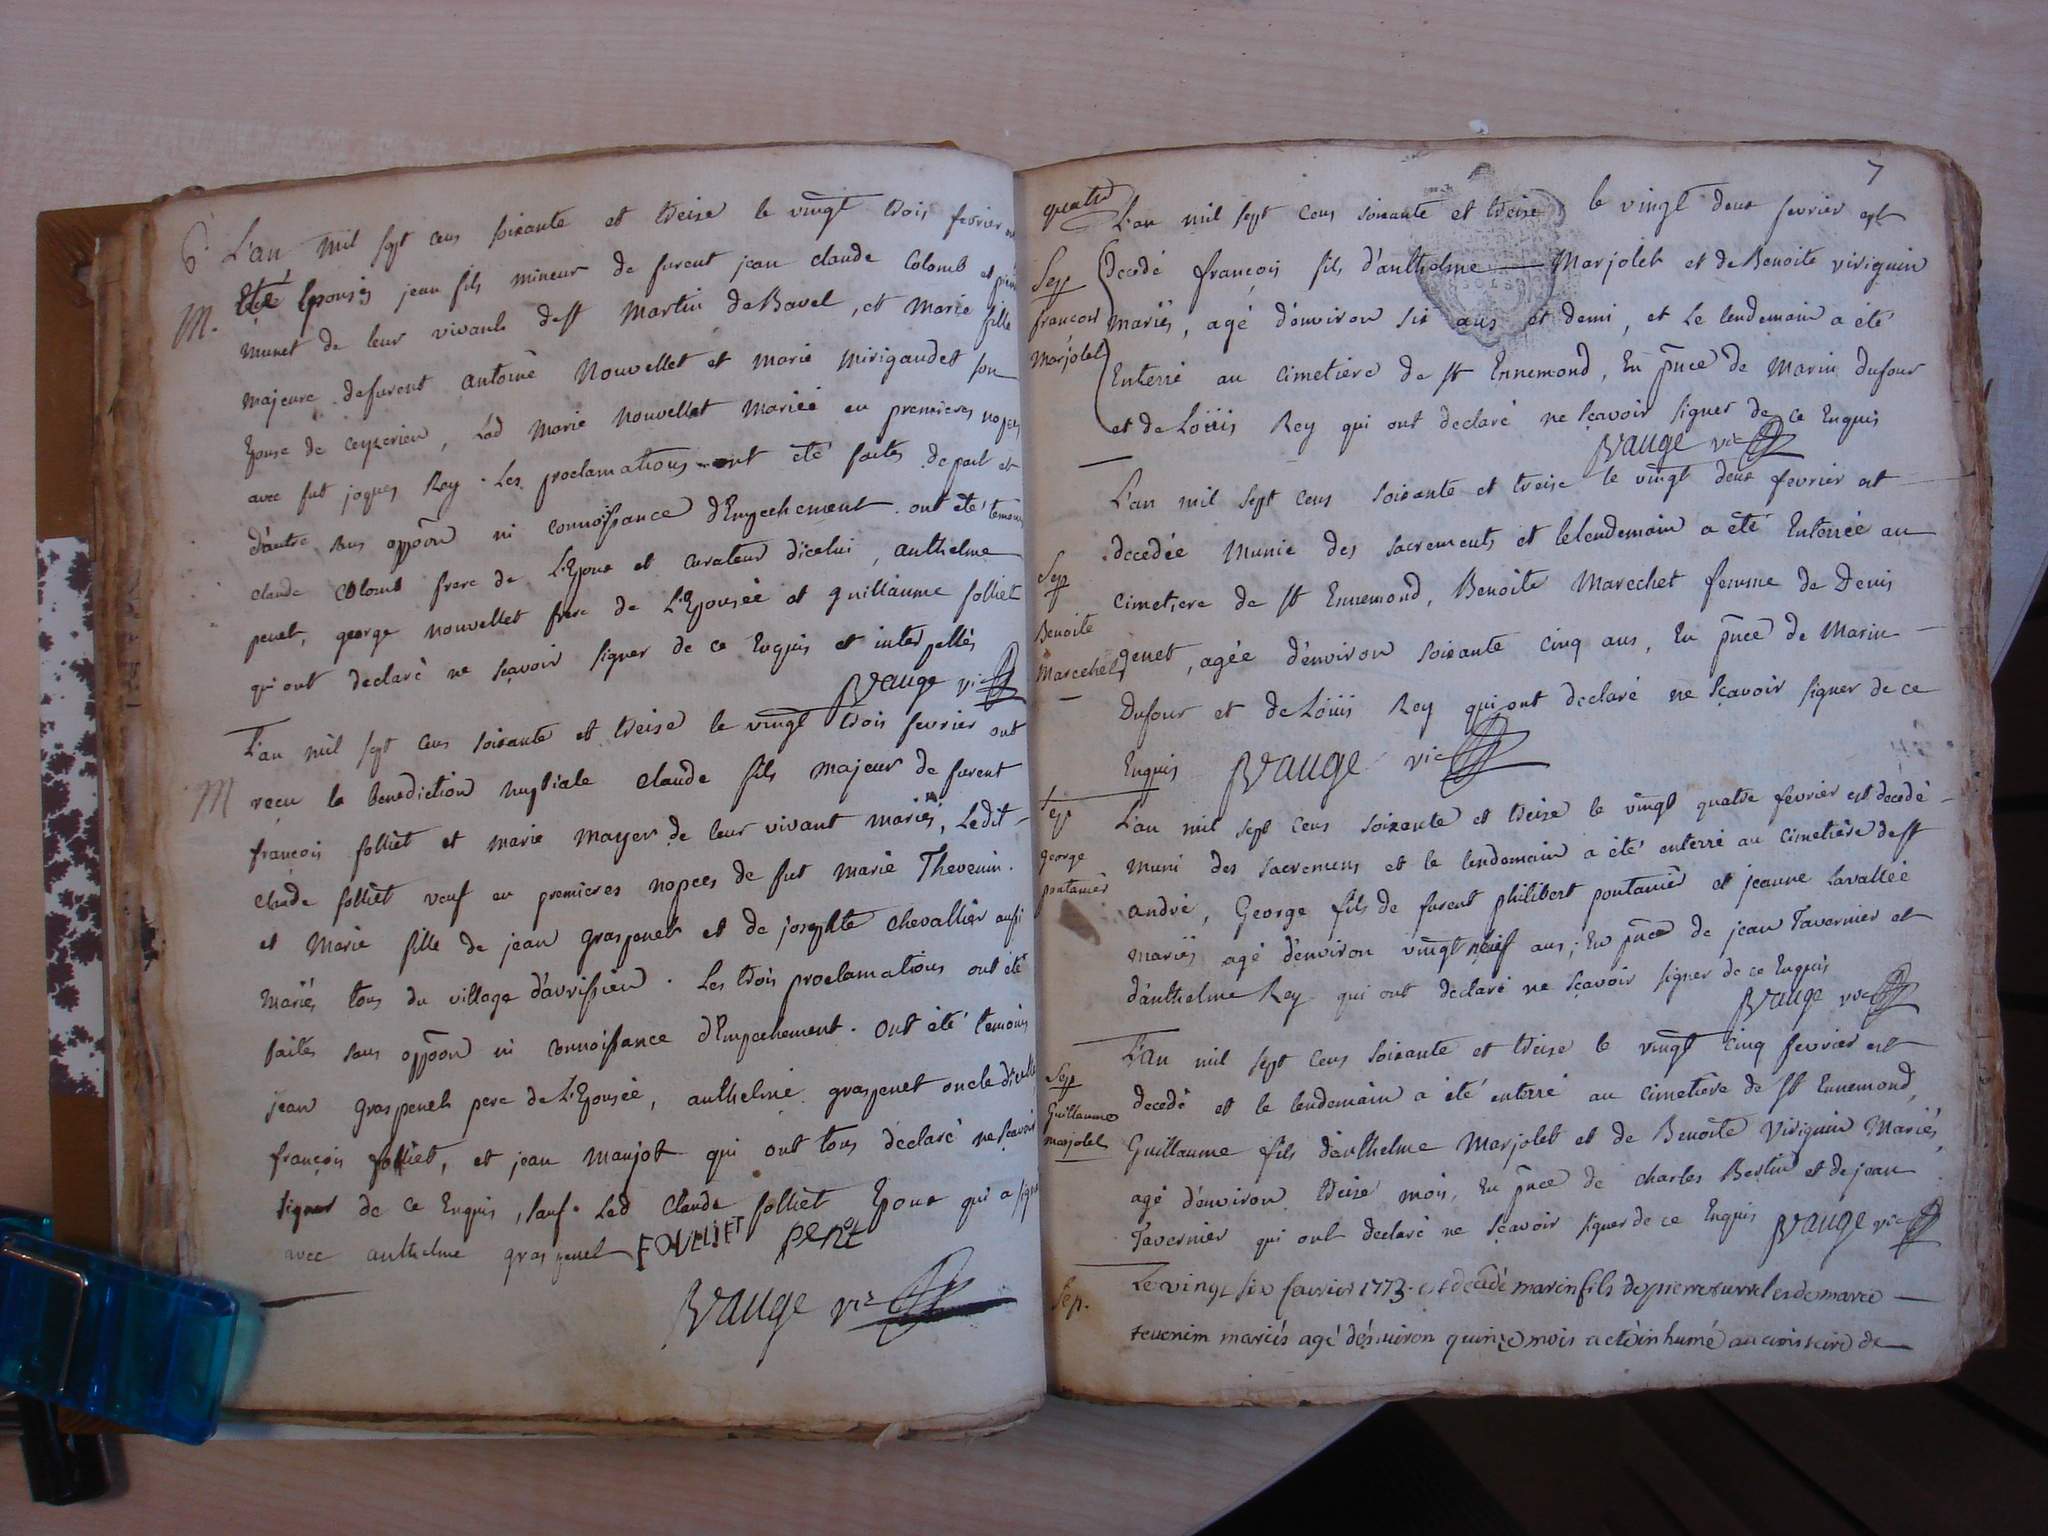 6
L'an mil sept cens soixante et treise le vingt trois fevrier ont
M. Eté Epousés jean fils mineur de furent jean claude Colomb et
munet de leur vivants de st Martin de Bavel, et marie fille
majeure defurent antoine Nouvellet et marie mirigaudet son
Epouse de ceyzerieu, Lad Marie nouvellet mariée en premieres nopces
avec fut jaques Rey. Les proclamations ont été faites depart et
d'autre sans oppõon ni connoissance d'Empechement. ont été temoins
claude colomb frere de L'Epoux et curateur d'icelui, anthelme
penet, george nouvellet frere de L'Epousée et guillaume folliet
qui ont declaré ne sçavoir signer de ce Enquis et interpellés
JVauge vic
L'an mil sept cens soixante et treise le vingt trois fevrier ont
M reçu la benediction nuptiale claude fils majeur de furent
françois folliet et marie mayer de leur vivant mariés, Ledit
claude folliet veuf en premieres nopces de fut marie Thevenin.
et Marie fille de jean graspenet et de josephte chevallier aussi
mariés tous du village d'avrissieu. Les trois proclamations ont été
faites sans oppõon ni connoissance d'Empechement. ont été temoins
jean graspenet pere de L'Epousée, anthelme graspenet oncle d'icelle
françois folliet, et jean manjot qui ont tous déclaré ne sçavoir
signer de ce Enquis, sauf Led Claude folliet Epoux qui a signé
avec anthelme graspenet FOVLLIET PENET
JVauge vic
7
quatre
L'an mil sept cens soixante et treise le vingt deux fevrier est
Sep françois Marjolet
decedé françois fils d'anthelme Marjolet et de Benoite viriguin
mariés, agé d'environ six ans et demi, et le lendemain a été
Enterré au cimetiere de st Ennemond, En p̃nce de Marin dufour
et de Loüis Rey qui ont declaré ne sçavoir signer de ce Enquis
JVauge vic
L'an mil sept cens soixante et treise le vingt deux fevrier est
Sep Benoite Marechet
decedée munie des sacrements et le lendemain a été Enterrée au
cimetiere de st Ennemond, Benoite Marechet femme de Denis
genet, agée d'environ soixante cinq ans, En p̃nce de Marin
Dufour et de Loüis Rey qui ont declaré ne sçavoir signer de ce
Enquis JVauge vic
Sep george pontanier
L'an mil sept cens soixante et treise le vingt quatre fevrier est decedé
muni des sacremens et le lendemain a été enterré au cimetiere de st
andré, George fils de furent philibert pontanier et jeanne Lavallée
mariés agé d'environ vingt neuf ans; En p̃nce de jean Tavernier et
d'anthelme Rey qui ont declaré ne sçavoir signer de ce Enquis
JVauge vic
L'an mil sept cens soixante et treise le vingt cinq fevrier est
Sep Guillaume marjolet
decedé et le lendemain a été enterré au cimetiere de st Ennemond,
Guillaume fils d'anthelme Marjolet et de Benoite Viriguin Mariés,
agé d'environ treise mois, En p̃nce de charles Bertin et de jean
Tavernier qui ont declaré ne sçavoir signer de ce Enquis JVauge vic
Sep. Le vingt six fevrier 1773. est decedé marin fils de pierre et de marie
tevenim mariés agé d'environ quinze mois a eté inhumé au cimetiere de